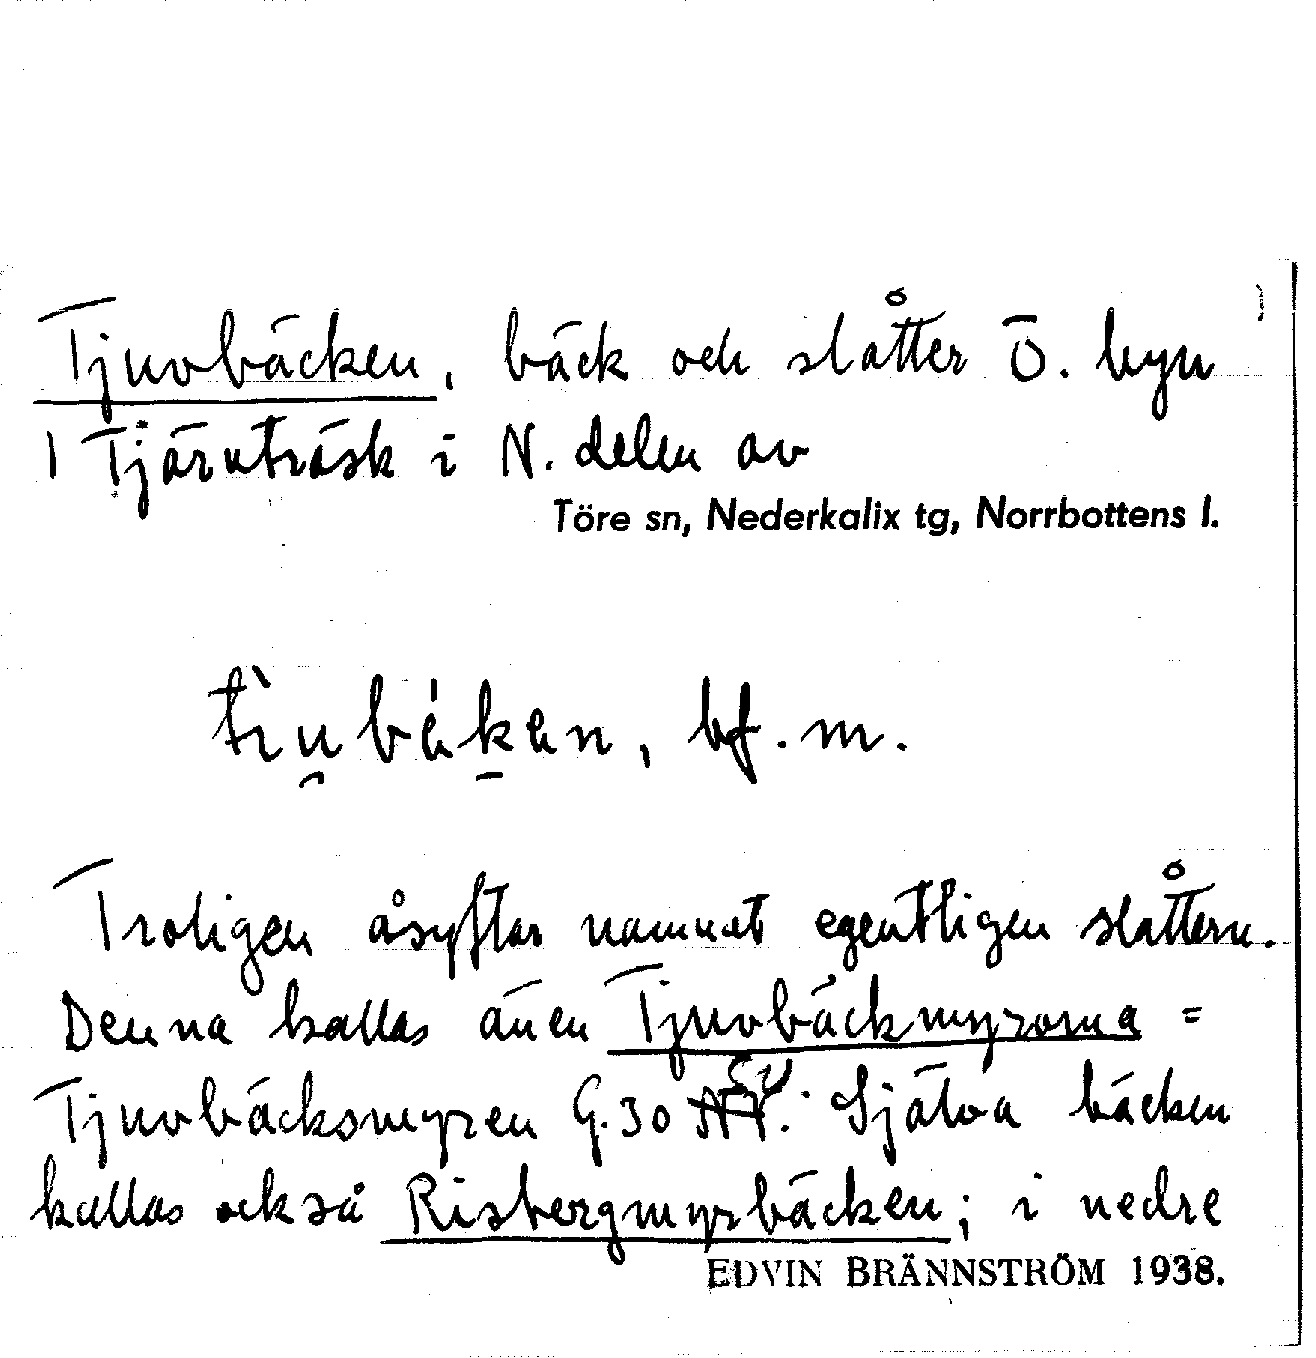 Tjuvbäcken, bäck och slåtter Ö. byn
1 Tjärnträsk i N. delen av
Töre sn, Nederkalix tg, Norrbottens l.
bf. m.
Troligen åsyftar namnet egentligen slåttern.
Denna kallas även Tjuvbäckmyrorna =
Tjuvbäcksmyren G. 30 SV. Själva bäcken
kallas också Risbergmyrbäcken; i nedre
EDVIN BRÄNNSTRÖM 1938.